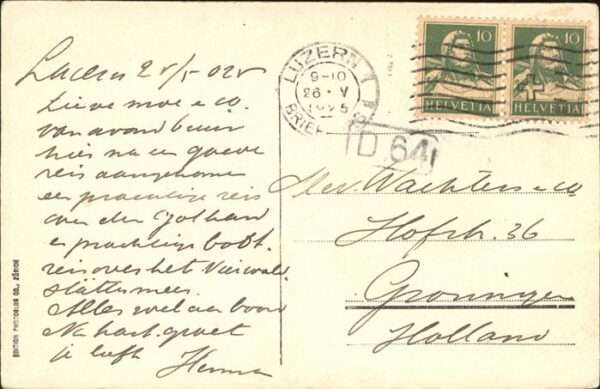 Luzern 25/5 025
Lieve moe & co.
van avond buur
hier na een goede
reis aangekomen
een prachtige reis
over den Gotthard
en prachtige boot.
reis over het Vierwald
stättermeer.
Alles wel aan boord
Na hart. groet
je liefh
Herman
LUZERN 1
9-10
26. V
1925
BRIEF
D 64
10
HELVETIA
10
HELVETIA
Mev. Wachters & co
Hofstr. 36
Groningen
Holland
EDITION PHOTOGLOB CO., ZÜRICH